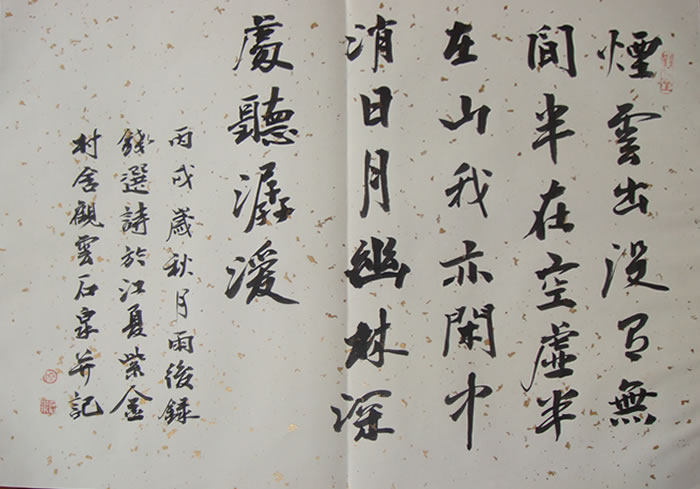 煙雲出没有無
間半在空虛半
在山我亦閑中
消日月幽林深
處聽潺湲
丙戌歲秋月雨後録
錢選詩於江夏紫金
村舍觀雲石泉并記